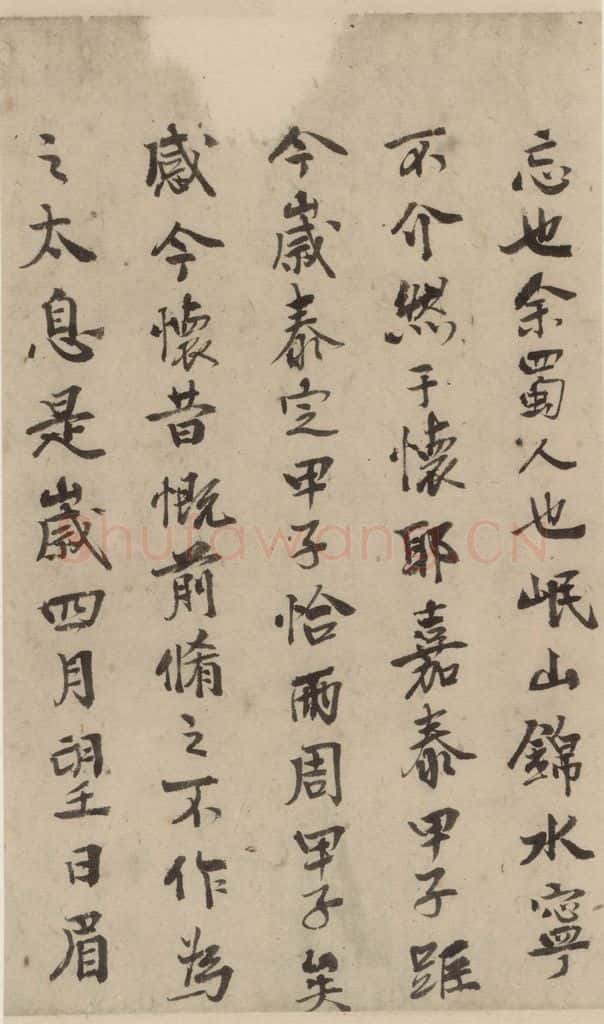 忘也余蜀人也岷山錦水寧
不介然于懷耶嘉泰甲子距
今歲泰定甲子恰兩周甲子矣
感今懷昔慨前脩之不作為
之太息是歲四月望日眉
Shufawang.CN